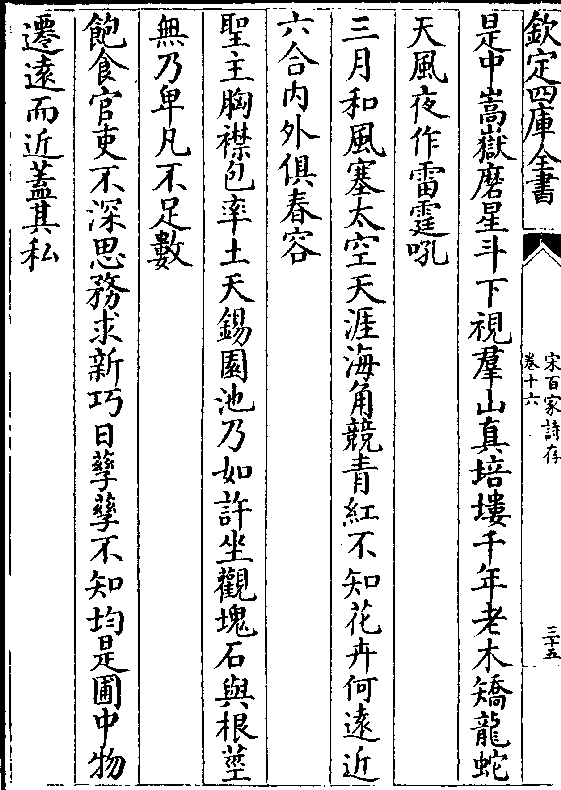 欽定四庫全書
宋百家詩存
卷十六
三十五
是中嵩嶽磨星斗下視羣山真培塿千年老木矯龍蛇
天風夜作雷霆吼
三月和風塞太空天涯海角競青紅不知花卉何遠近
六合內外俱春容
聖王胸襟包率土天錫園池乃如許坐觀塊石與根莖
無乃卑凡不足數
飽食官吏不深思務求新巧日孳孳不知均是圃中物
遷遠而近蓋其私